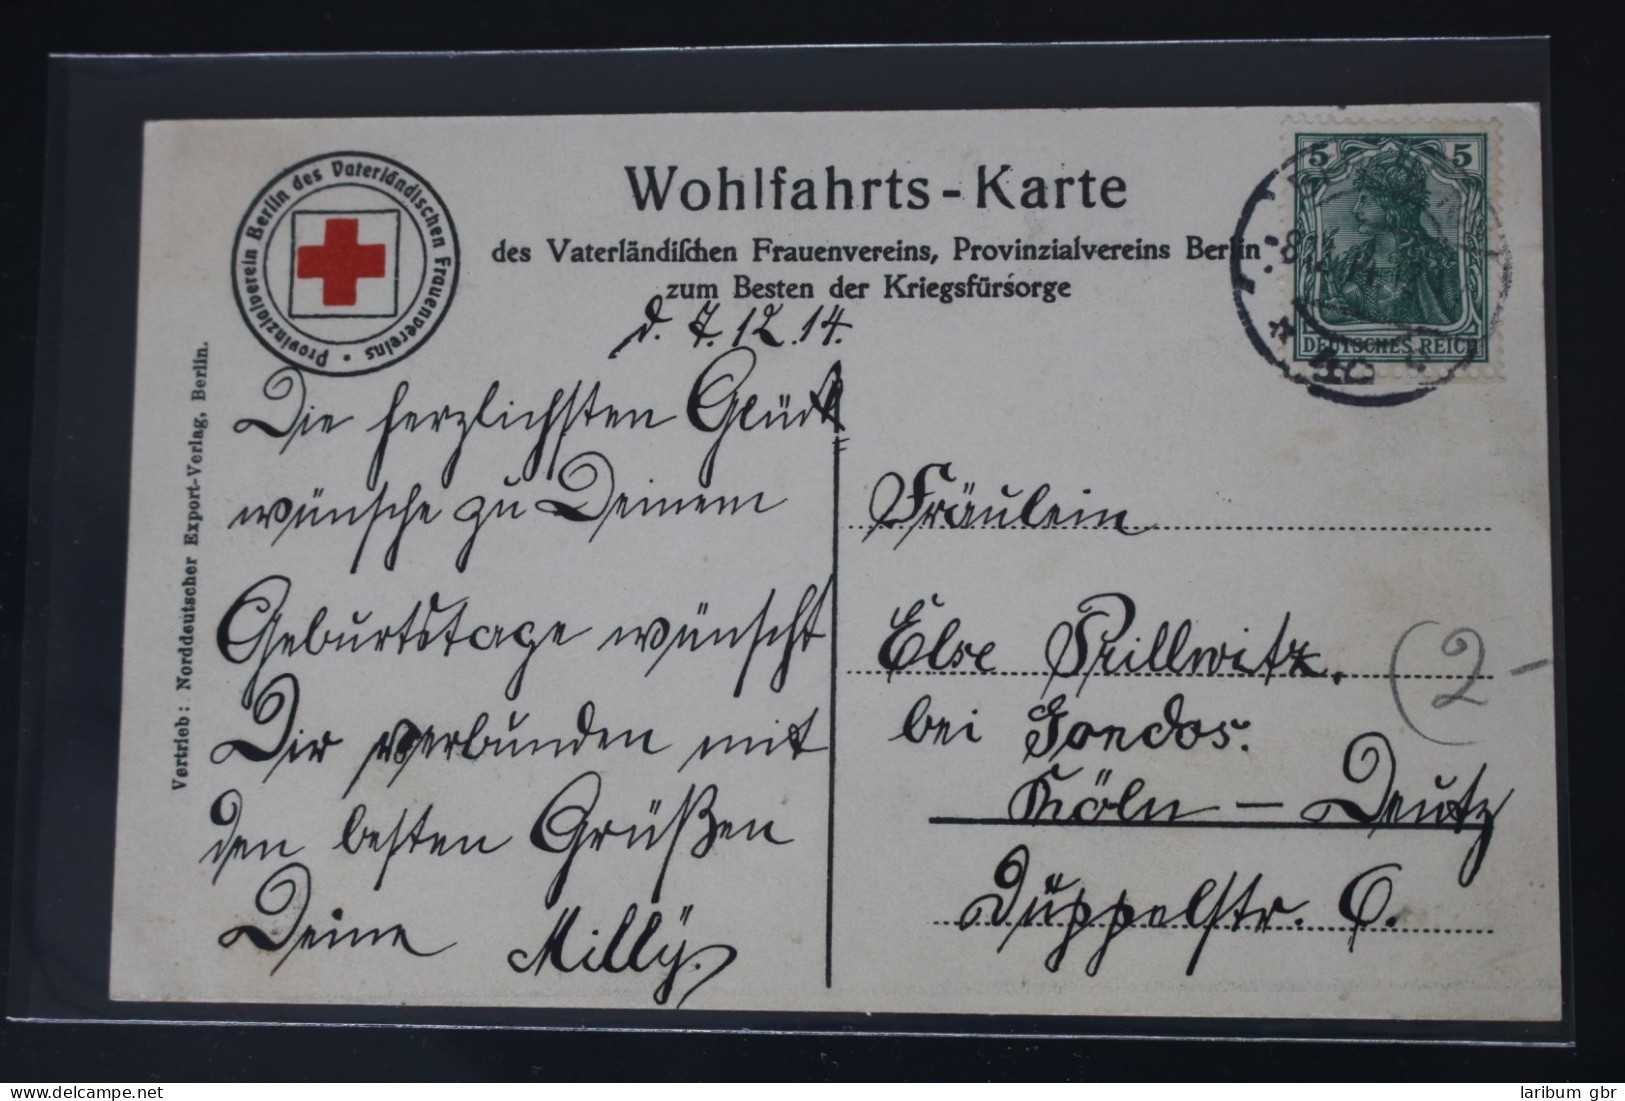 Provinzialverein Berlin des Vaterländischen Frauenvereins
Wohlfahrts-Karte
des Vaterländischen Frauenvereins, Provinzialvereins Berlin
zum Besten der Kriegsfürsorge
5 5
DEUTSCHES REICH
d. 7.12.14.
Die herzlichsten Glück
=
wünsche zu Deinem
Geburtstage wünscht
Dir verbunden mit
den besten Grüßen
Deine Milly.
Fräulein
Else Prillwitz.
bei Gondos.
Köln - Deutz
Düppelstr. 6.
(2-
Vertrieb: Norddeutscher Export-Verlag, Berlin.
laribum gbr